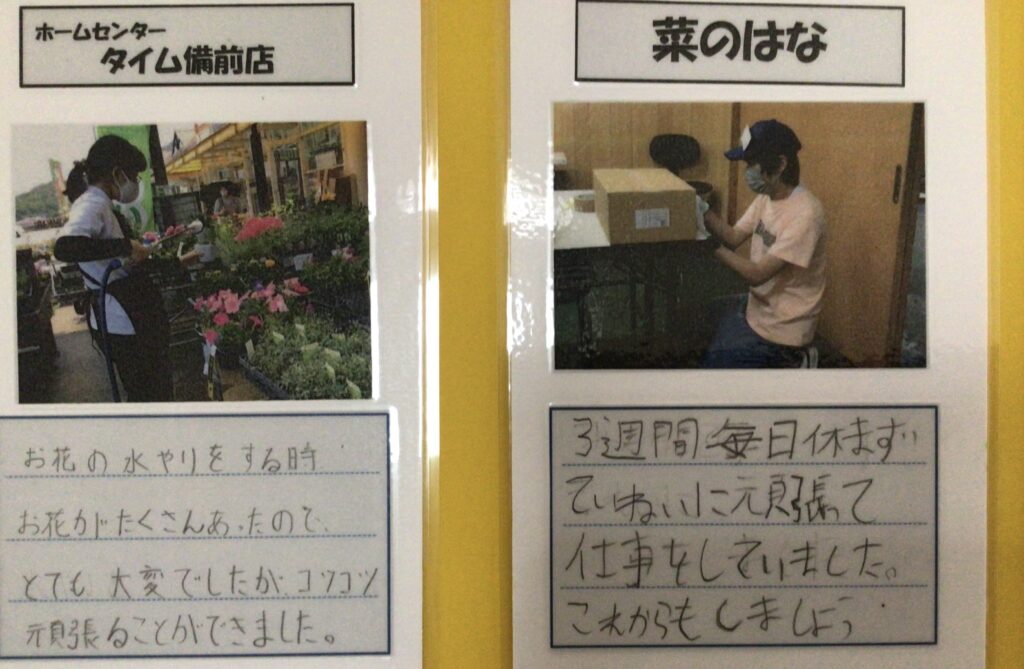 ホームセンター
タイム備前店
お花の水やりをする時
お花がたくさんあったので、
とても大変でしたが、コツコツ
頑張ることができました。
菜のはな
3週間毎日休まず
ていねいに頑張って
仕事をしていました。
これからもしましょう